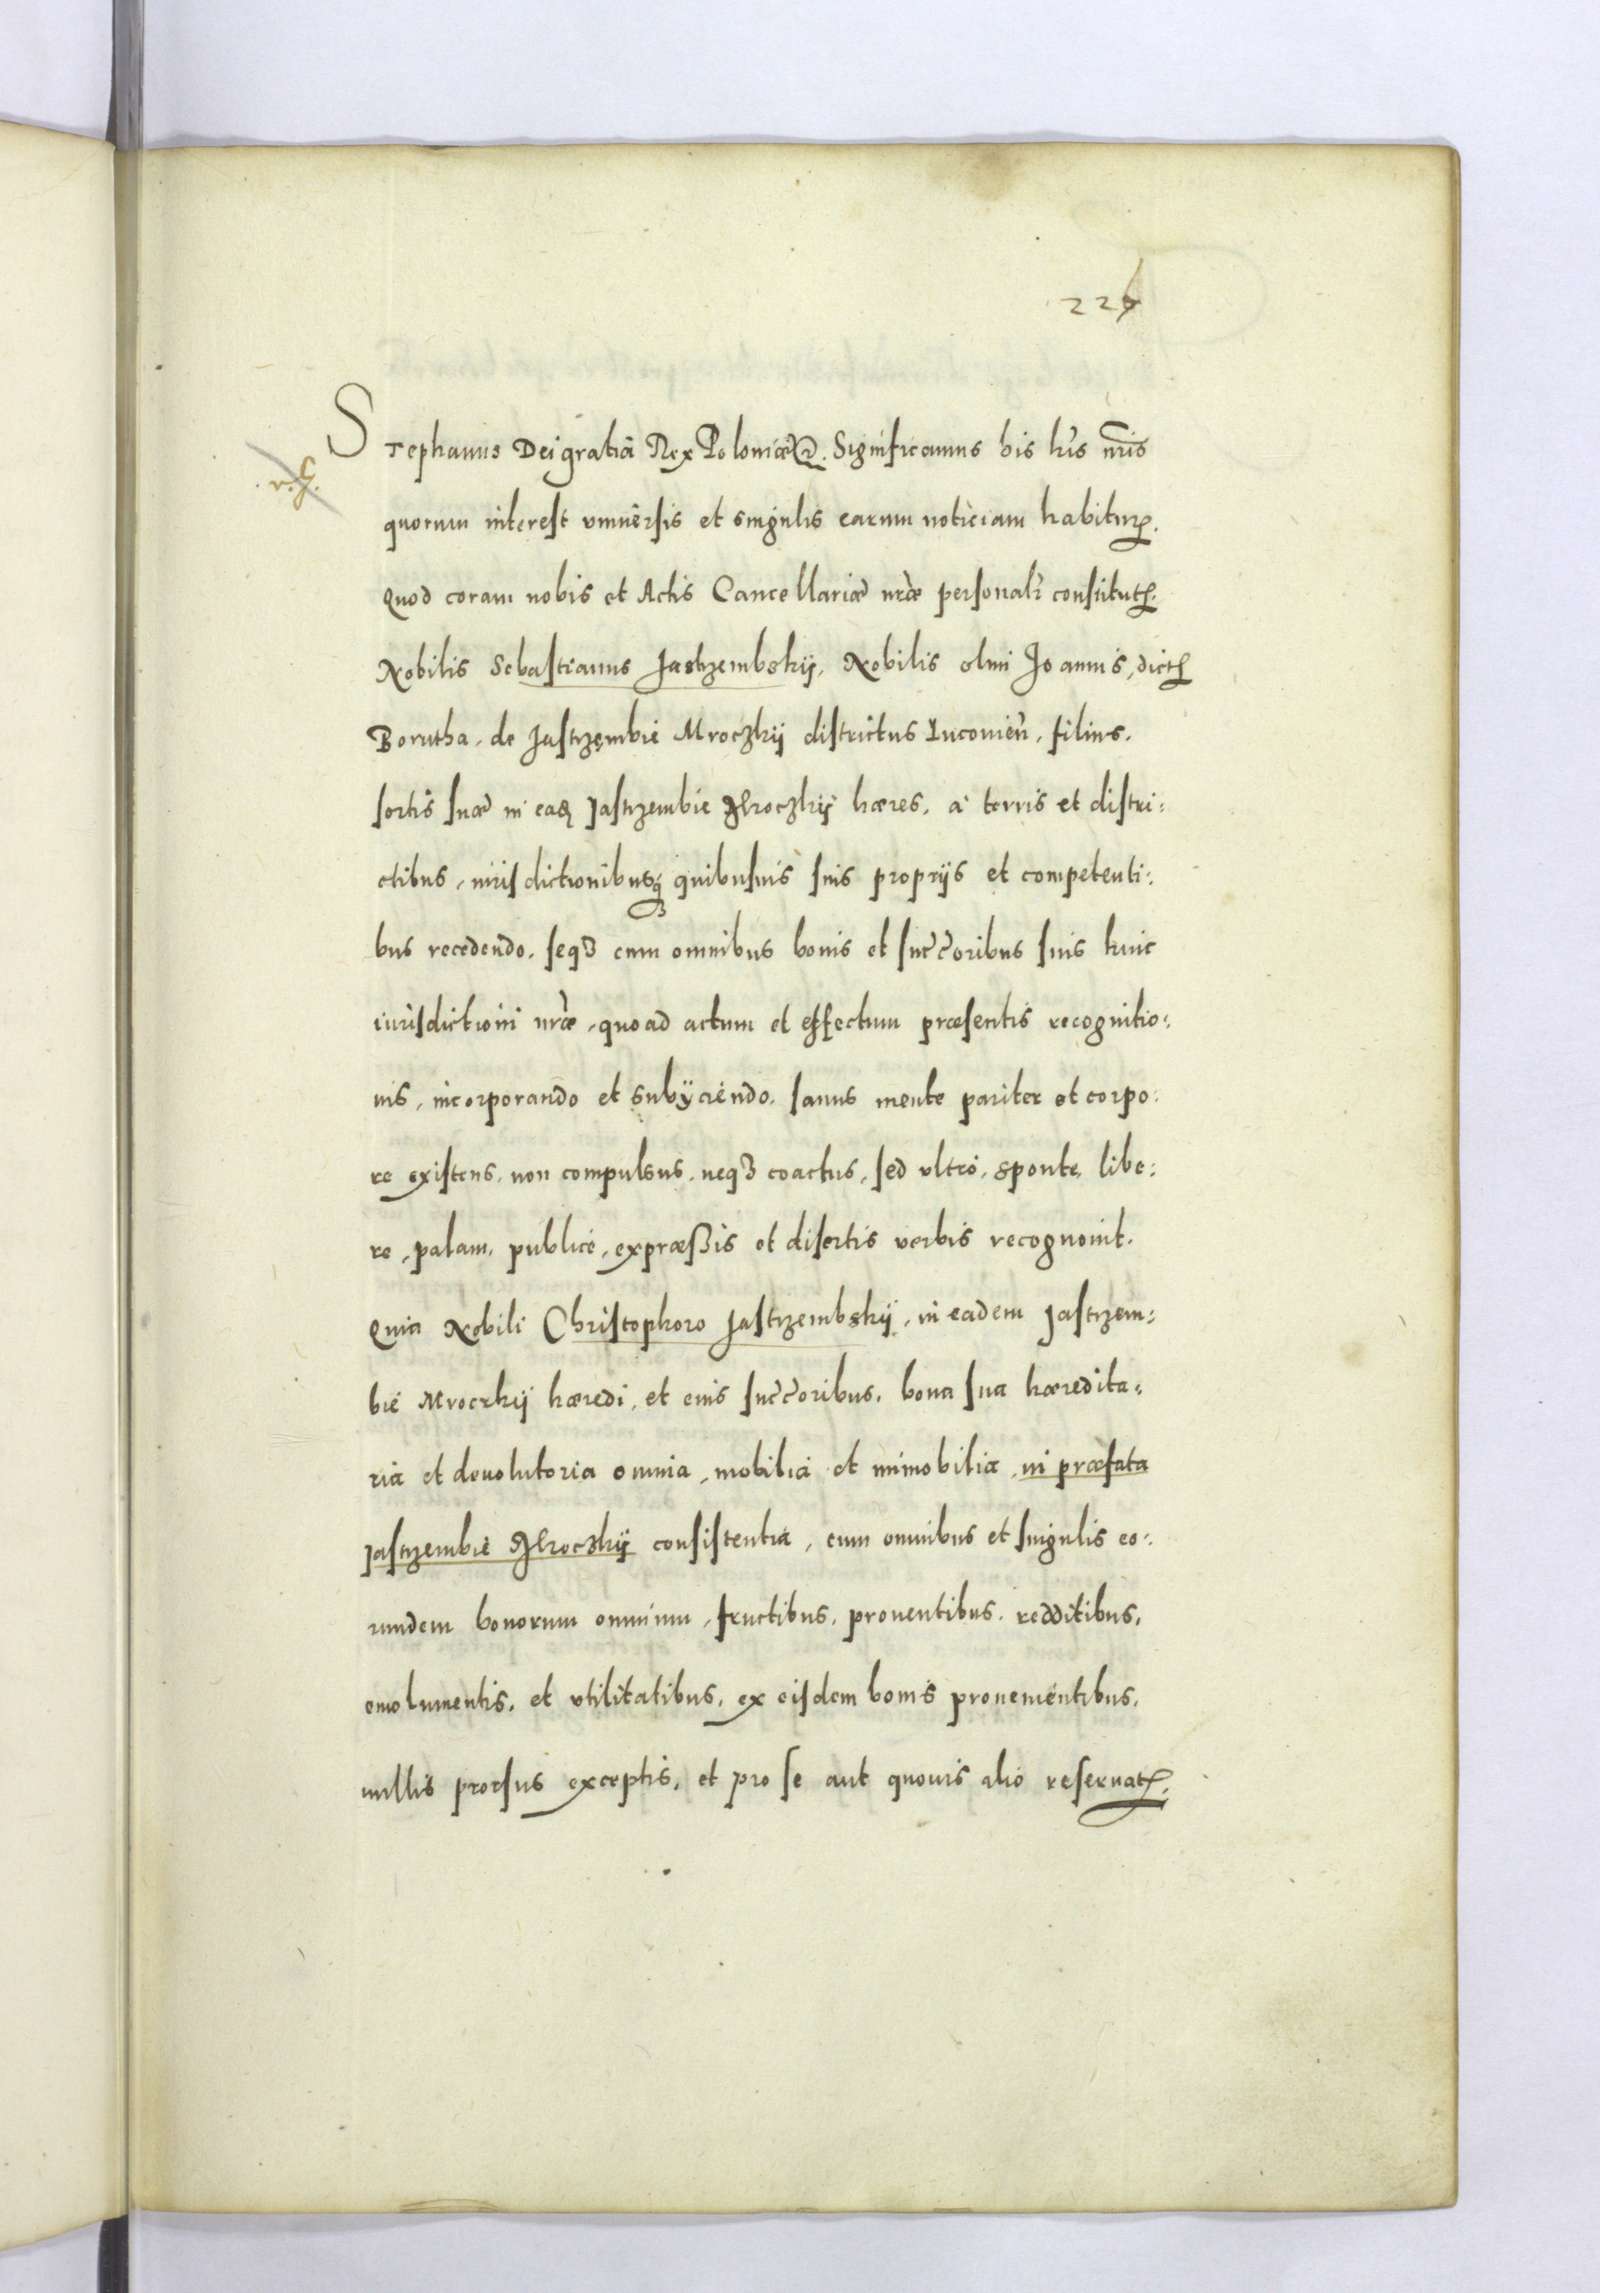 226
Stephanus Dei gratia Rex Poloniæ &c. Significamus his lris nris
quorum interest vniuersis et singulis earum noticiam habitur.
Quod coram nobis et Actis Cancellariæ nræ personalr constitut.
Nobilis Sebastianus Jastrzembskij, Nobilis olim Joannis, dict
Borutha, de Jastrzembie Mroczkij districtus Luconien, filius,
sortis suæ in ead Jastrzembie Mroczkij hæres, a terris et distri:
ctibus, iurisdictionibusq quibusuis suis proprijs et competenti:
bus recedendo, seq3 cum omnibus bonis et succoribus suis huic
iurisdictioni nræ, quoad actum et effectum præsentis recognitio:
nis, incorporando et subijciendo. sanus mente pariter et corpo:
re existens, non compulsus, neq3 coactus, sed vltro, sponte, libe:
re, palam, publice, expræssis et disertis verbis recognouit.
Quia Nobili Christophoro Jastrzembskij, in eadem Jastrzem:
bie Mroczkij hæredi, et eius succoribus, bona sua hæredita:
ria et deuolutoria omnia, mobilia et immobilia, in præfata
Jastrzembie Mroczkij consistentia, cum omnibus et singulis eo:
rundem bonorum omnium, fructibus, prouentibus, redditibus,
emolumentis, et vtilitatibus, ex eisdem bonis prouenientibus,
nullis prorsus exceptis, et pro se aut quouis alio reseruat.